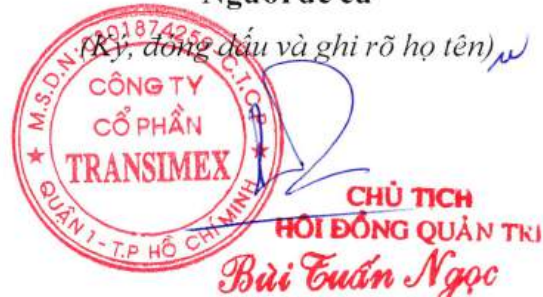 Người đề cử
(Ký, đóng dấu và ghi rõ họ tên)
M.S.D.N: 0301874259 - C.T.C.P
CÔNG TY
CỔ PHẦN
TRANSIMEX
QUẬN 1 - T.P HỒ CHÍ MINH
CHỦ TỊCH
HỘI ĐỒNG QUẢN TRỊ
Bùi Tuấn Ngọc